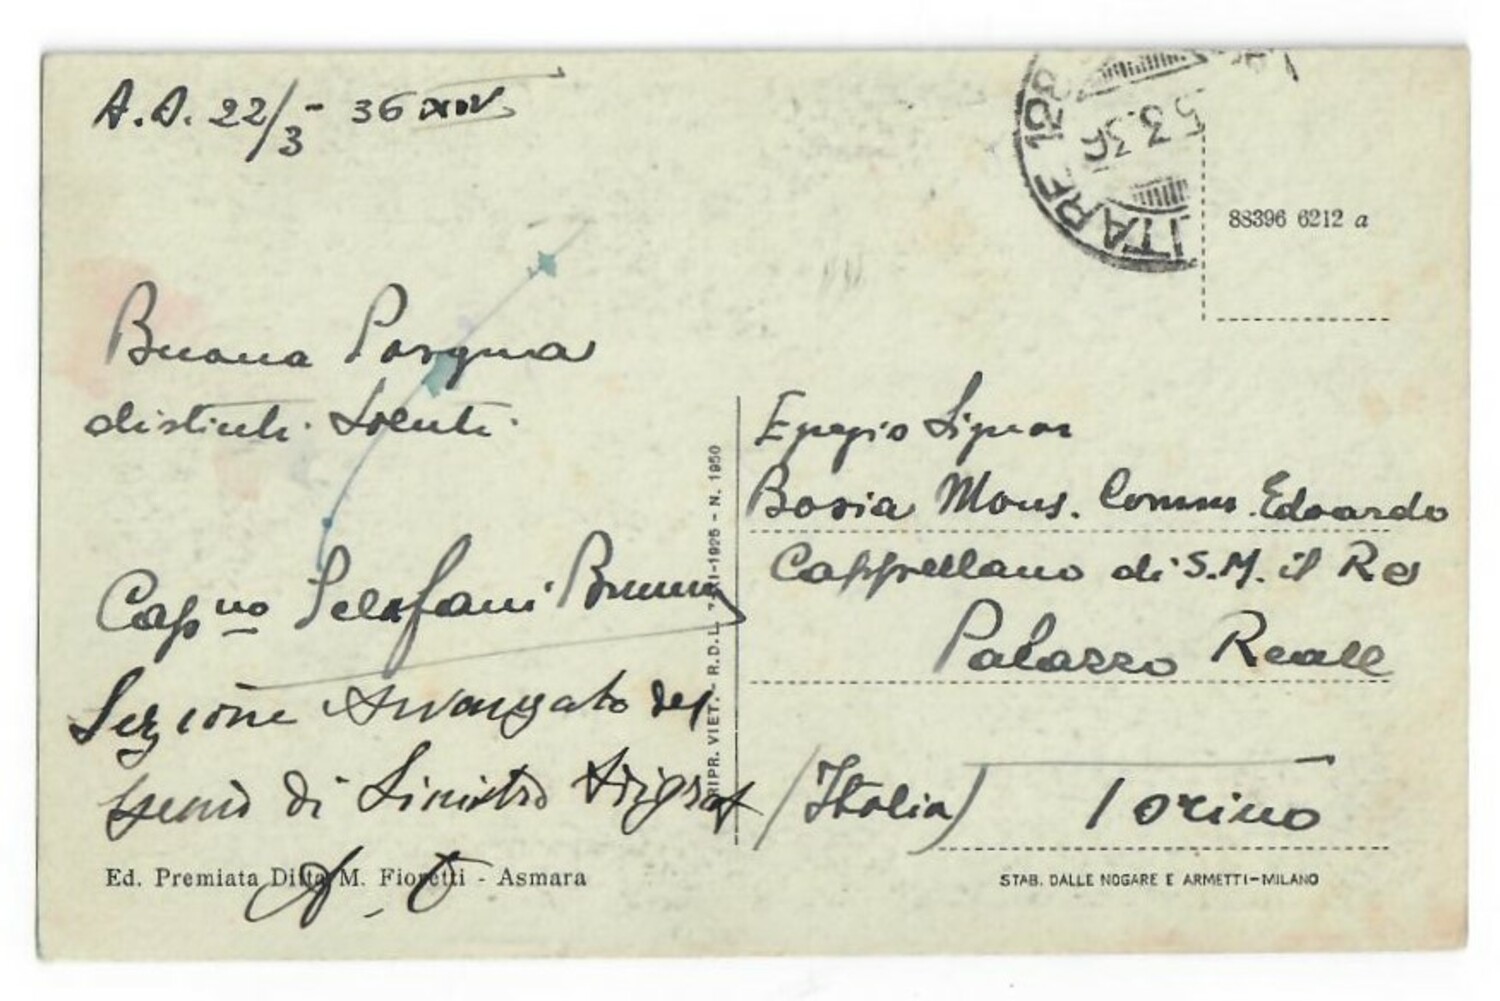 A.S. 22/3 - 36 XIV
Buona Pasqua
distinti. Saluti.
Cap no Selafani Bruno
Sezione Avanzato del
genio di Sinistro
A. O.
Ed. Premiata Ditta M. Fioretti - Asmara
RIPR. VIET. - R.D.L. 7-XI-1925 - N. 1950
ITARE 12
53.36
88396 6212 a
Egregio Signor
Bosia Mons. Comm. Edoardo
Cappellano di S.M. il Re
Palazzo Reale
(Italia) Torino
STAB. DALLE NOGARE E ARMETTI-MILANO